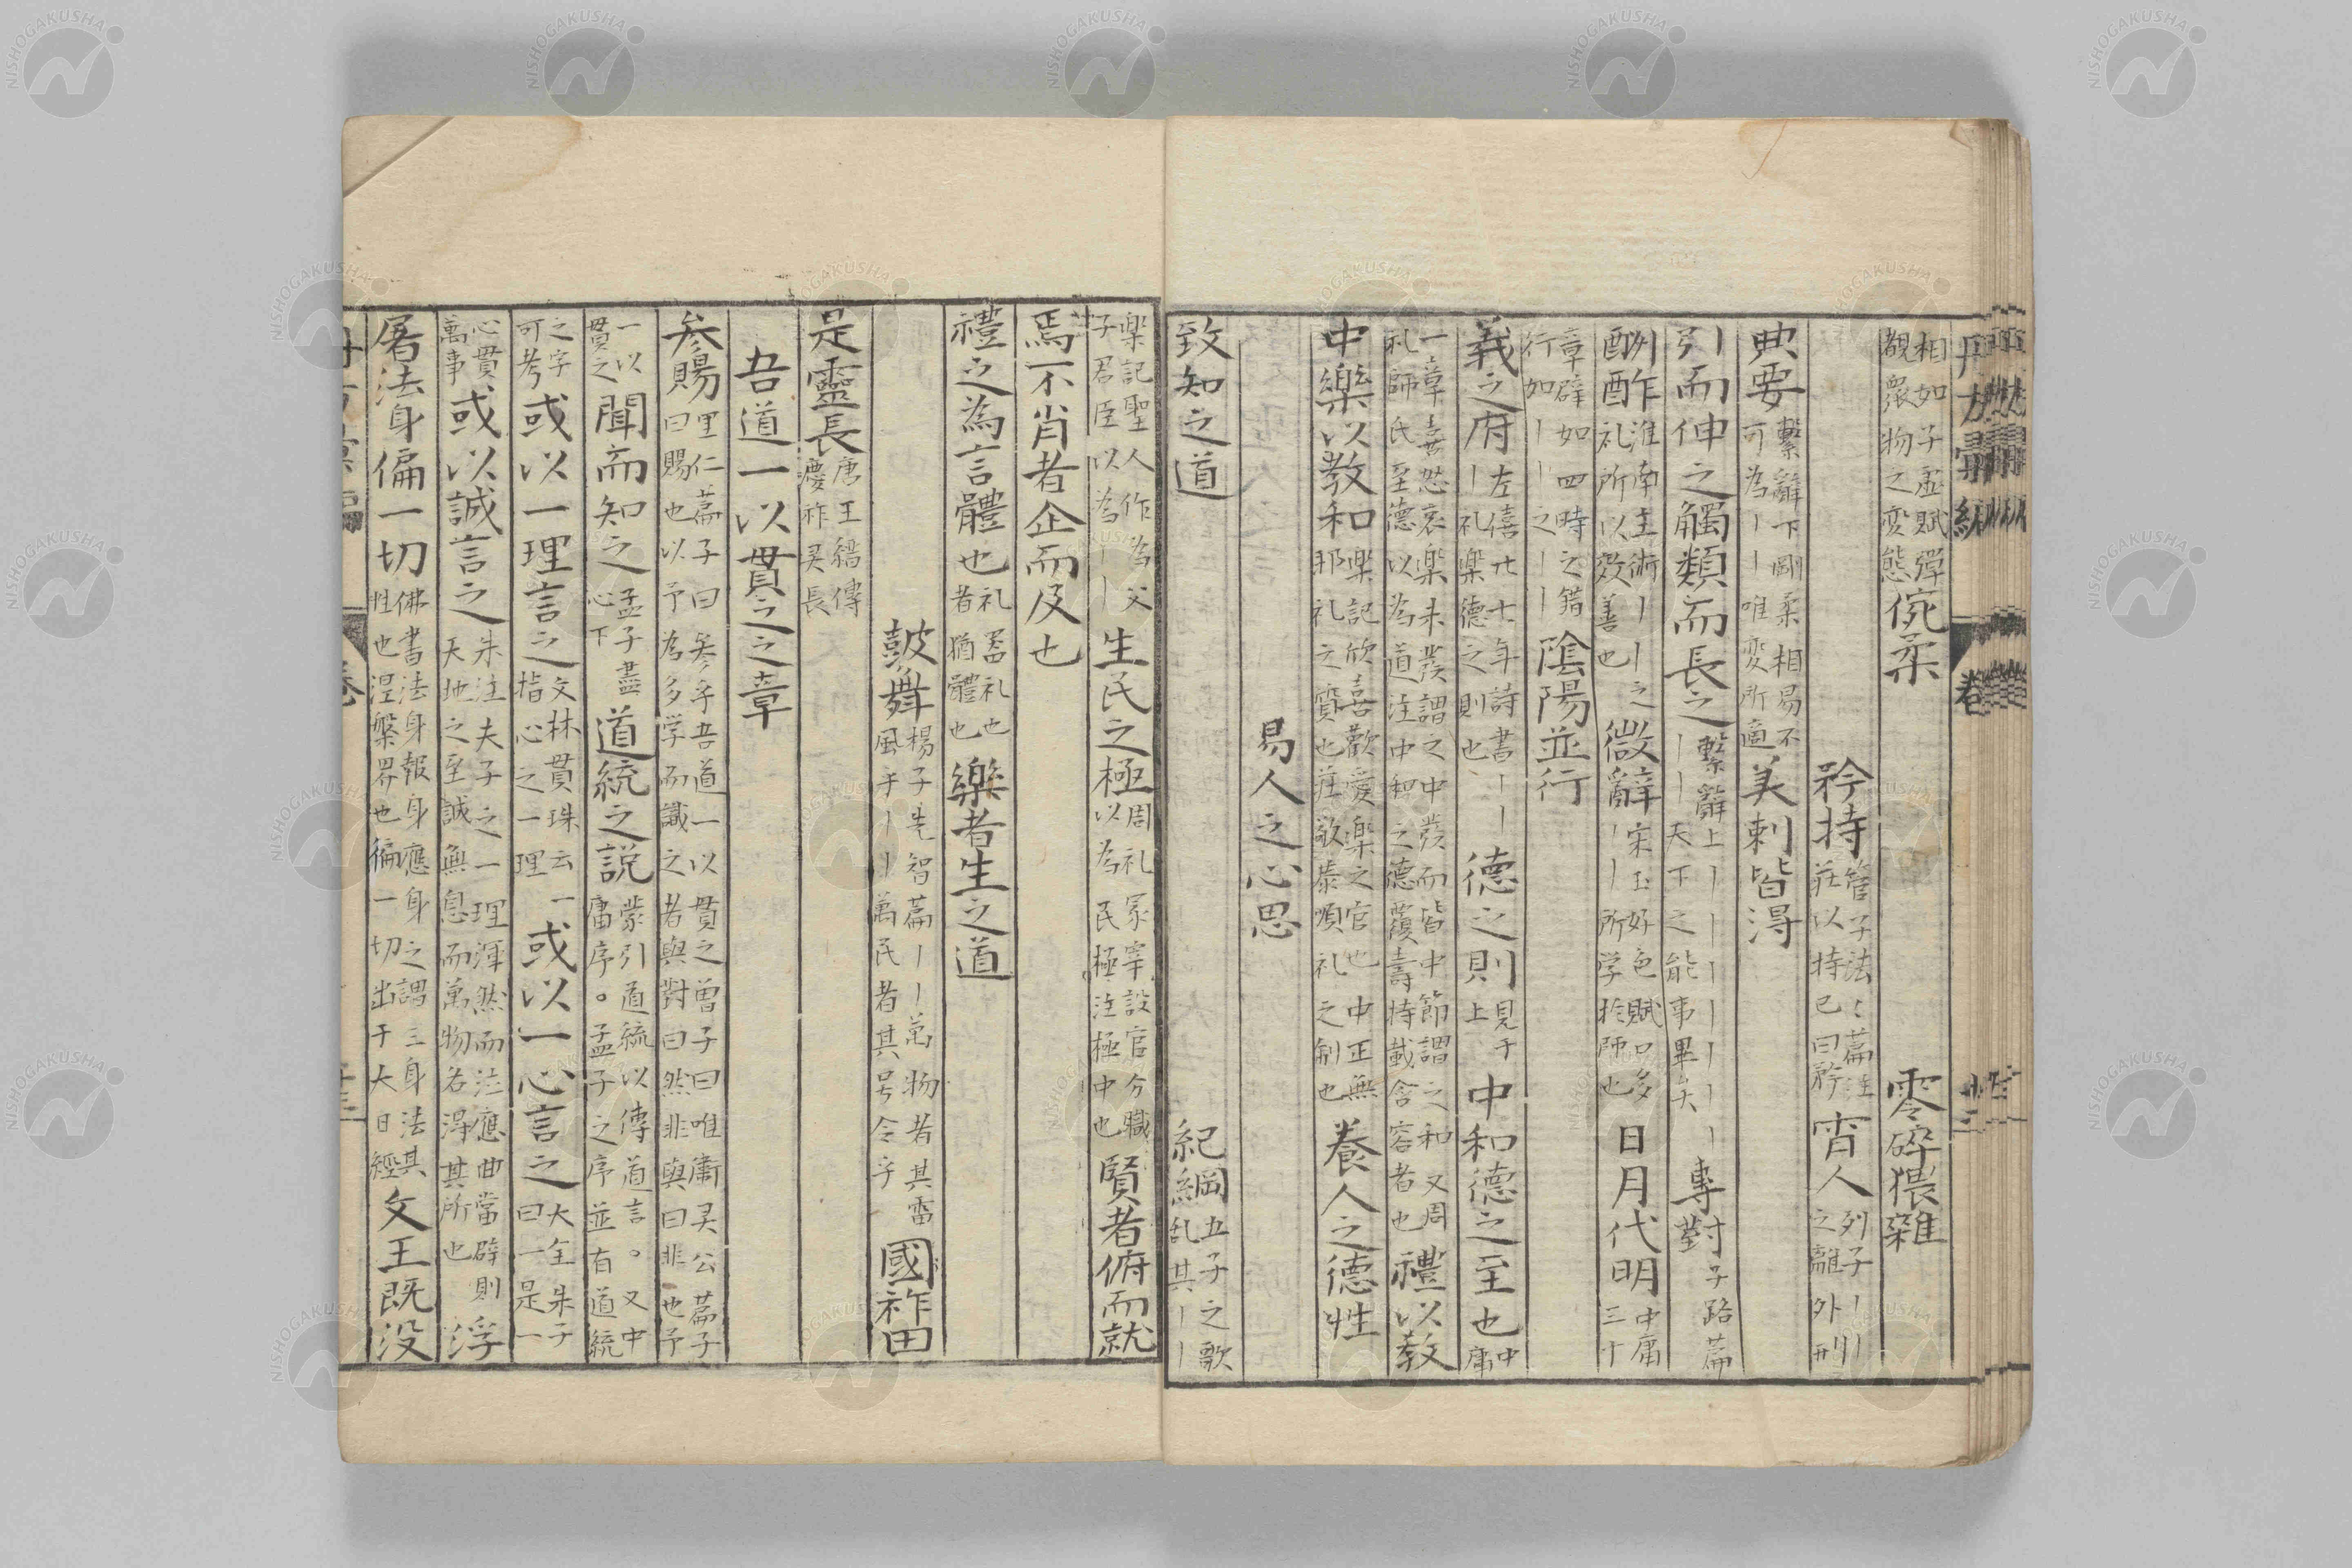 相如子虚賦殫
覩衆物之変態俛柔 零碎猥雜
矜持管子法〻篇注
莊以持已曰矜宵人列子丨丨
之離外刑
典要繫辭下剛柔相易不
可為丨丨唯変所適美刺皆得
引而伸之觸類而長之繫辭上丨丨丨丨丨丨
丨丨天下之能事畢矣專對子路篇
酬酢淮南主術丨丨之
礼所以效善也微辭宋玉好色賦口多
丨丨所学於師也日月代明中庸
三十
章辟如四時之錯
行如丨丨之丨丨陰陽並行
義之府左僖廿七年詩書丨丨丨
丨礼樂德之則也德之則見于
上中和德之至也中
庸
一章喜怒哀楽未発謂之中発而皆中節謂之和又周
礼師氏至德以為道注中和之德覆壽持載含容者也禮以教
中樂以教和楽記欣喜歡愛楽之官也中正無
邪礼之質也莊敬恭順礼之制也養人之德性
易人之心思
致知之道 紀綱五子之歌
乱其丨丨
楽記聖人作為父
子君臣以為丨丨生民之極周礼冢宰設官分職
以為民極注極中也賢者俯而就
焉不肖者企而及也
禮之為言體也礼器礼也
者猶體也樂者生之道
鼓舞楊子先智篇丨丨萬物者其雷
風乎丨丨萬民者其号令乎國祚
是靈長唐王縉傳
慶祚灵長
吾道一以貫之之章
参賜里仁篇子曰参乎吾道一以貫之曽子曰唯衛灵公篇子
曰賜也以予為多学而識之者與對曰然非與曰非也予
一以
貫之聞而知之孟子盡
心下道統之説蒙引道統以傳道言。又中
庸序。孟子之序並有道統
之字
可考或以一理言之文林貫珠云一
指心之一理或以一心言之大全朱子
曰一是一
心貫
萬事或以誠言之朱注夫子之一理渾然而泛應曲當辟則
天地之至誠無息而萬物各得其所也浮
屠法身偏一切佛書法身報身應身之謂三身法其
性也涅槃界也徧一切出于大日經文王既没